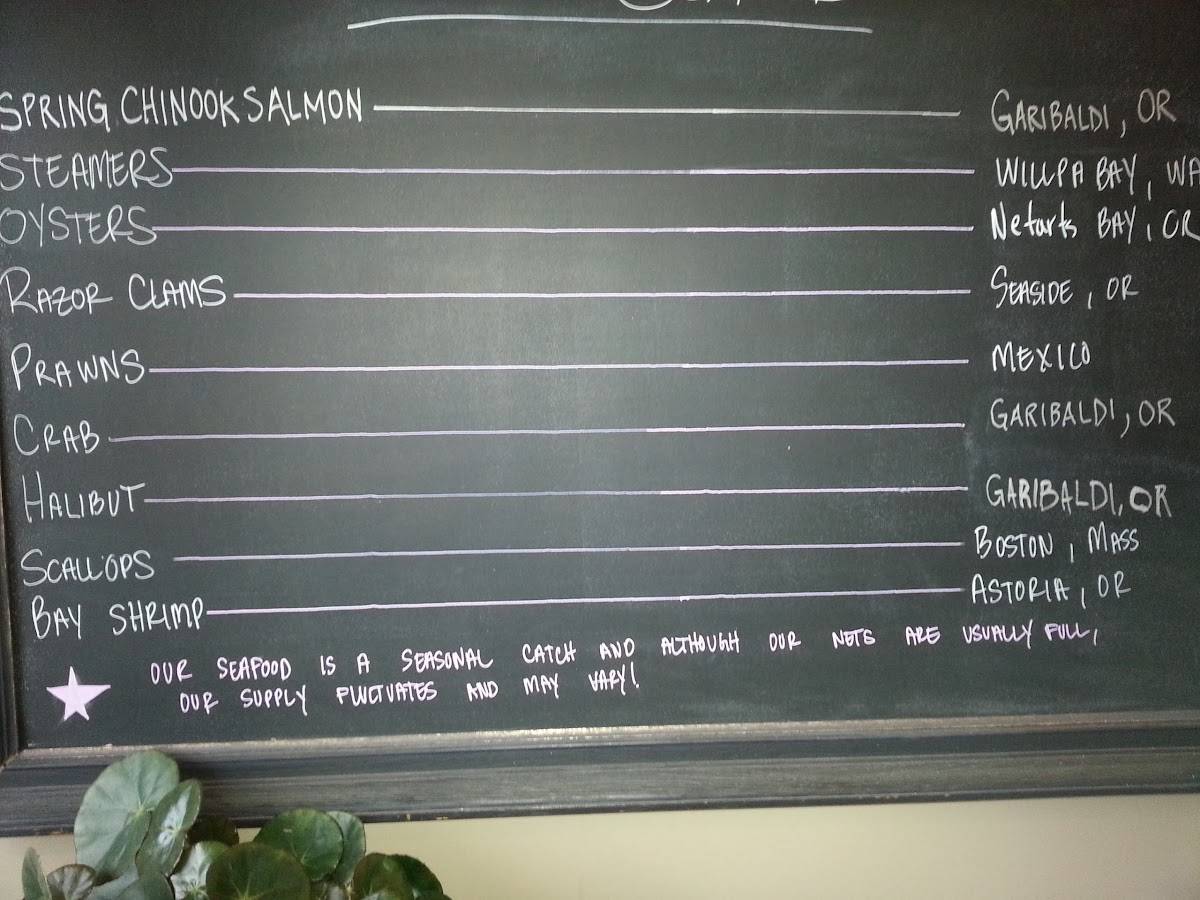 SPRING CHINOOK SALMON GARIBALDI, OR
STEAMERS WILLPA BAY, WA
OYSTERS Netarts BAY, OR
RAZOR CLAMS SEASIDE, OR
PRAWNS MEXICO
CRAB GARIBALDI, OR
HALIBUT GARIBALDI, OR
SCALLOPS BOSTON, MASS
BAY SHRIMP ASTORIA, OR
OUR SEAFOOD IS A SEASONAL CATCH AND ALTHOUGH OUR NETS ARE USUALLY FULL,
OUR SUPPLY FLUCTUATES AND MAY VARY!